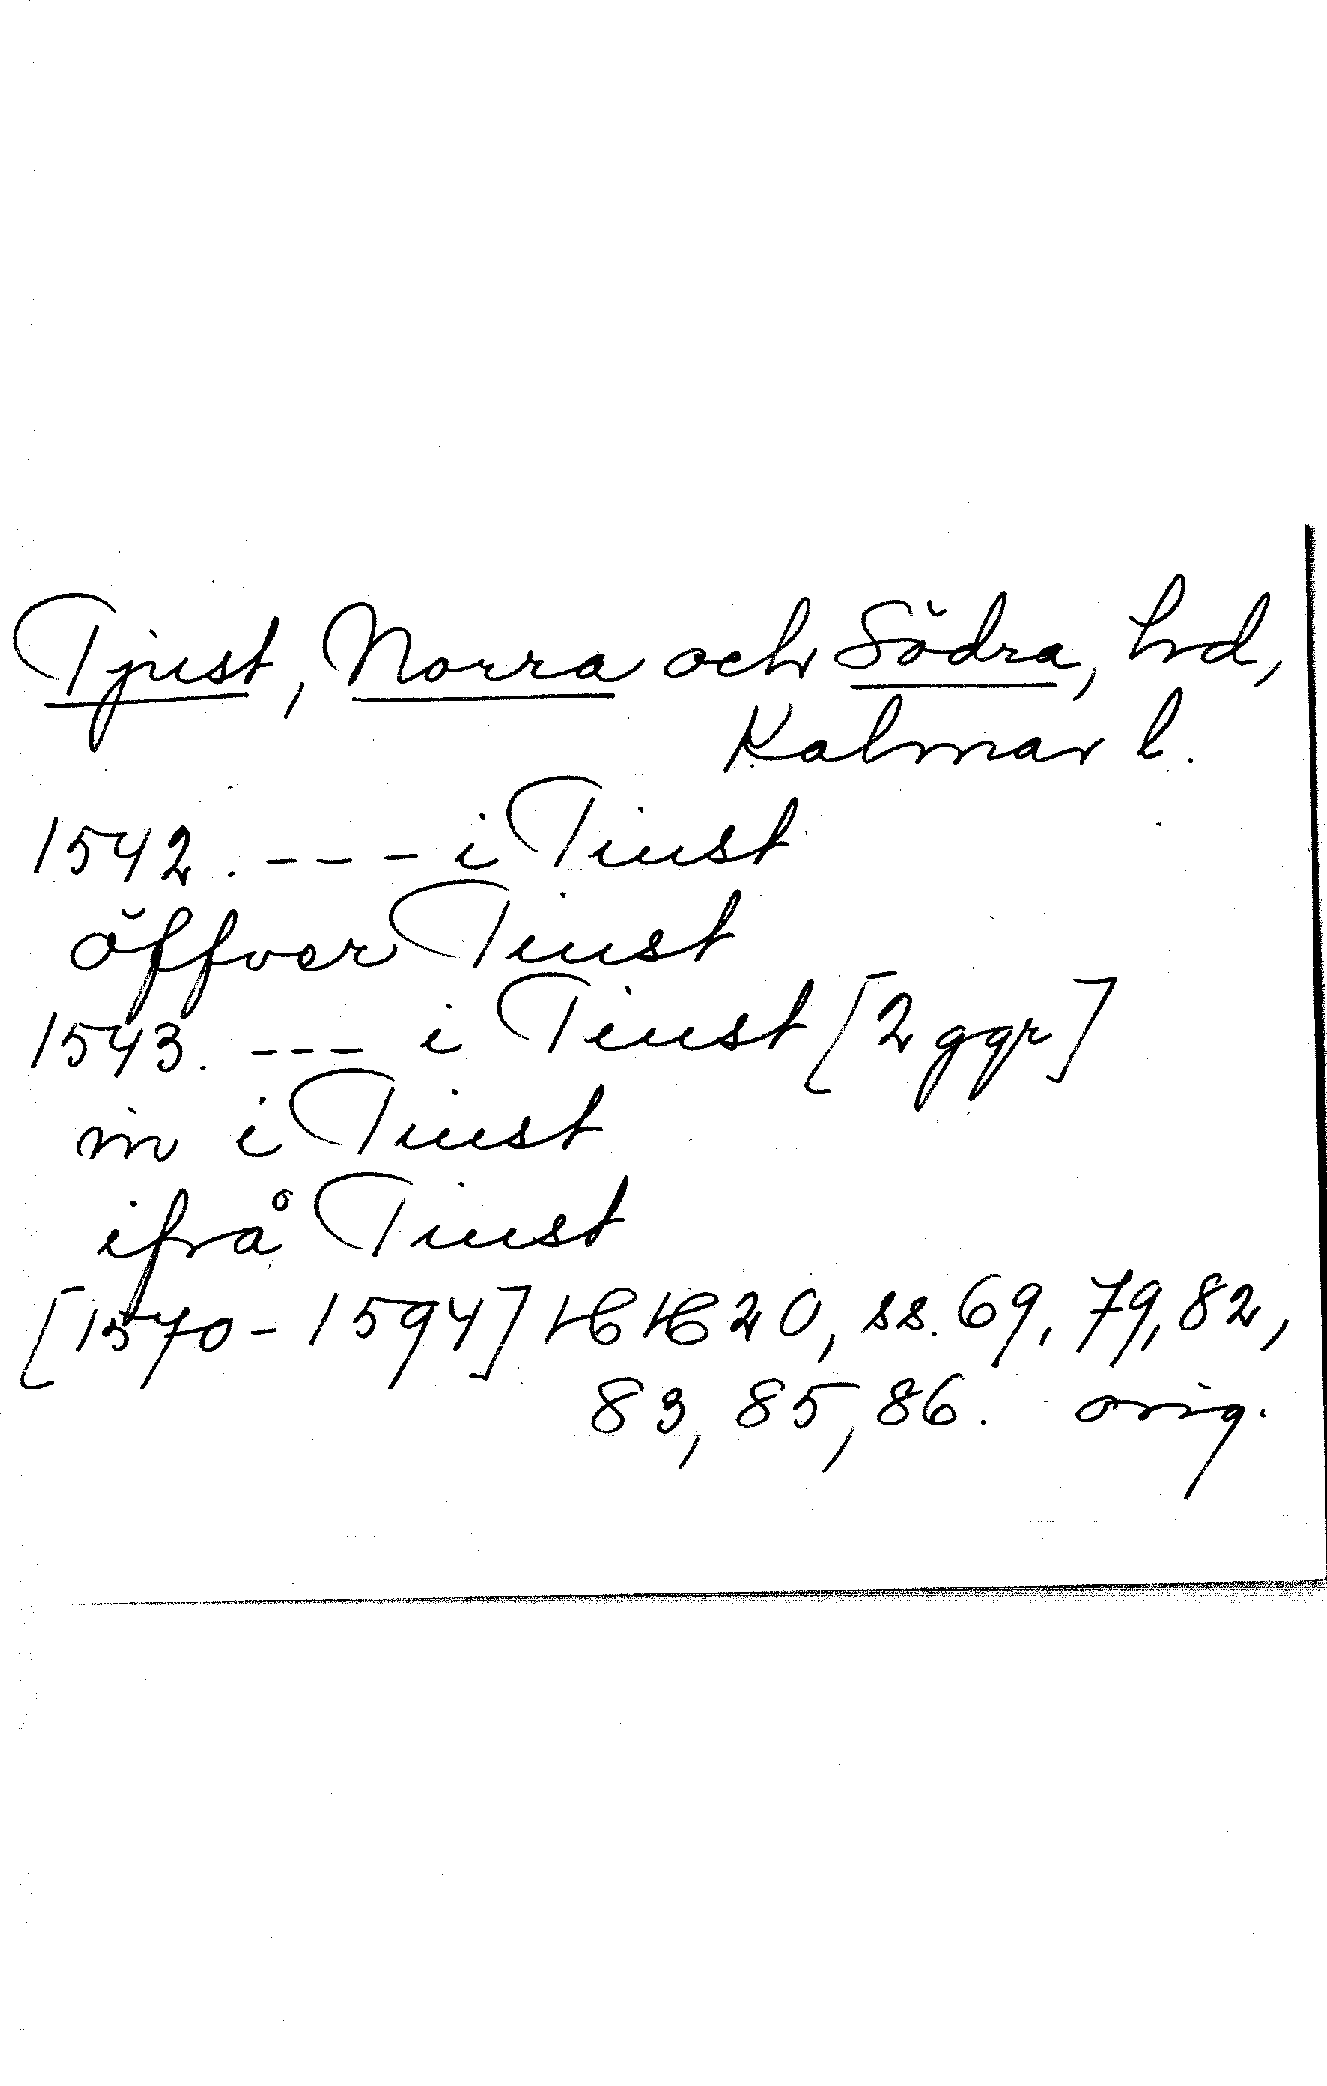 Tjust, Norra och Södra, hd,
Kalmar l.
1542. --- i Tiust
öffver Tiust
1543. --- i Tiust [2 ggr]
in i Tiust
ifrå Tiust
[1570-1594] HH 20, ss. 69, 79, 82,
83, 85, 86. orig.